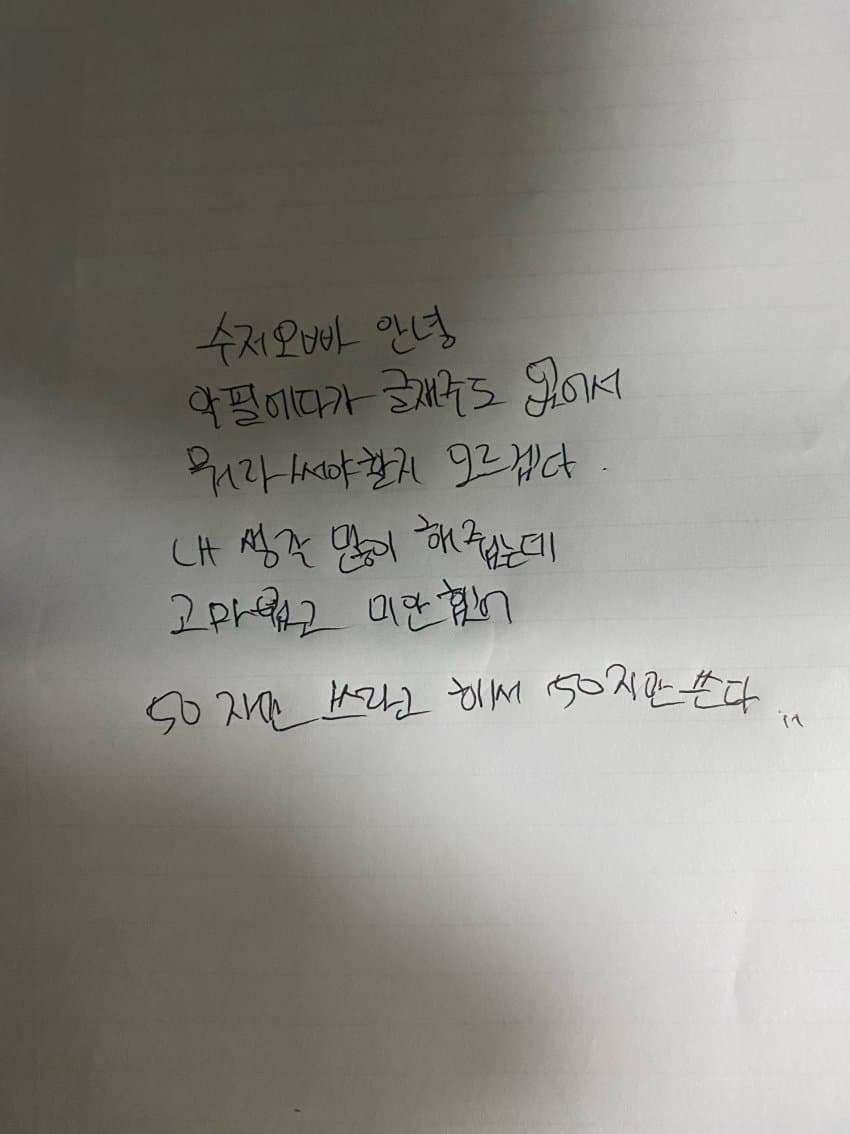 수저오빠 안녕
악필에다가 글재주도 없어서
뭐라 써야할지 모르겠다.
내 생각 많이 해줬는데
고마웠고 미안했어
50자만 쓰라고 해서 50자만 쓴다